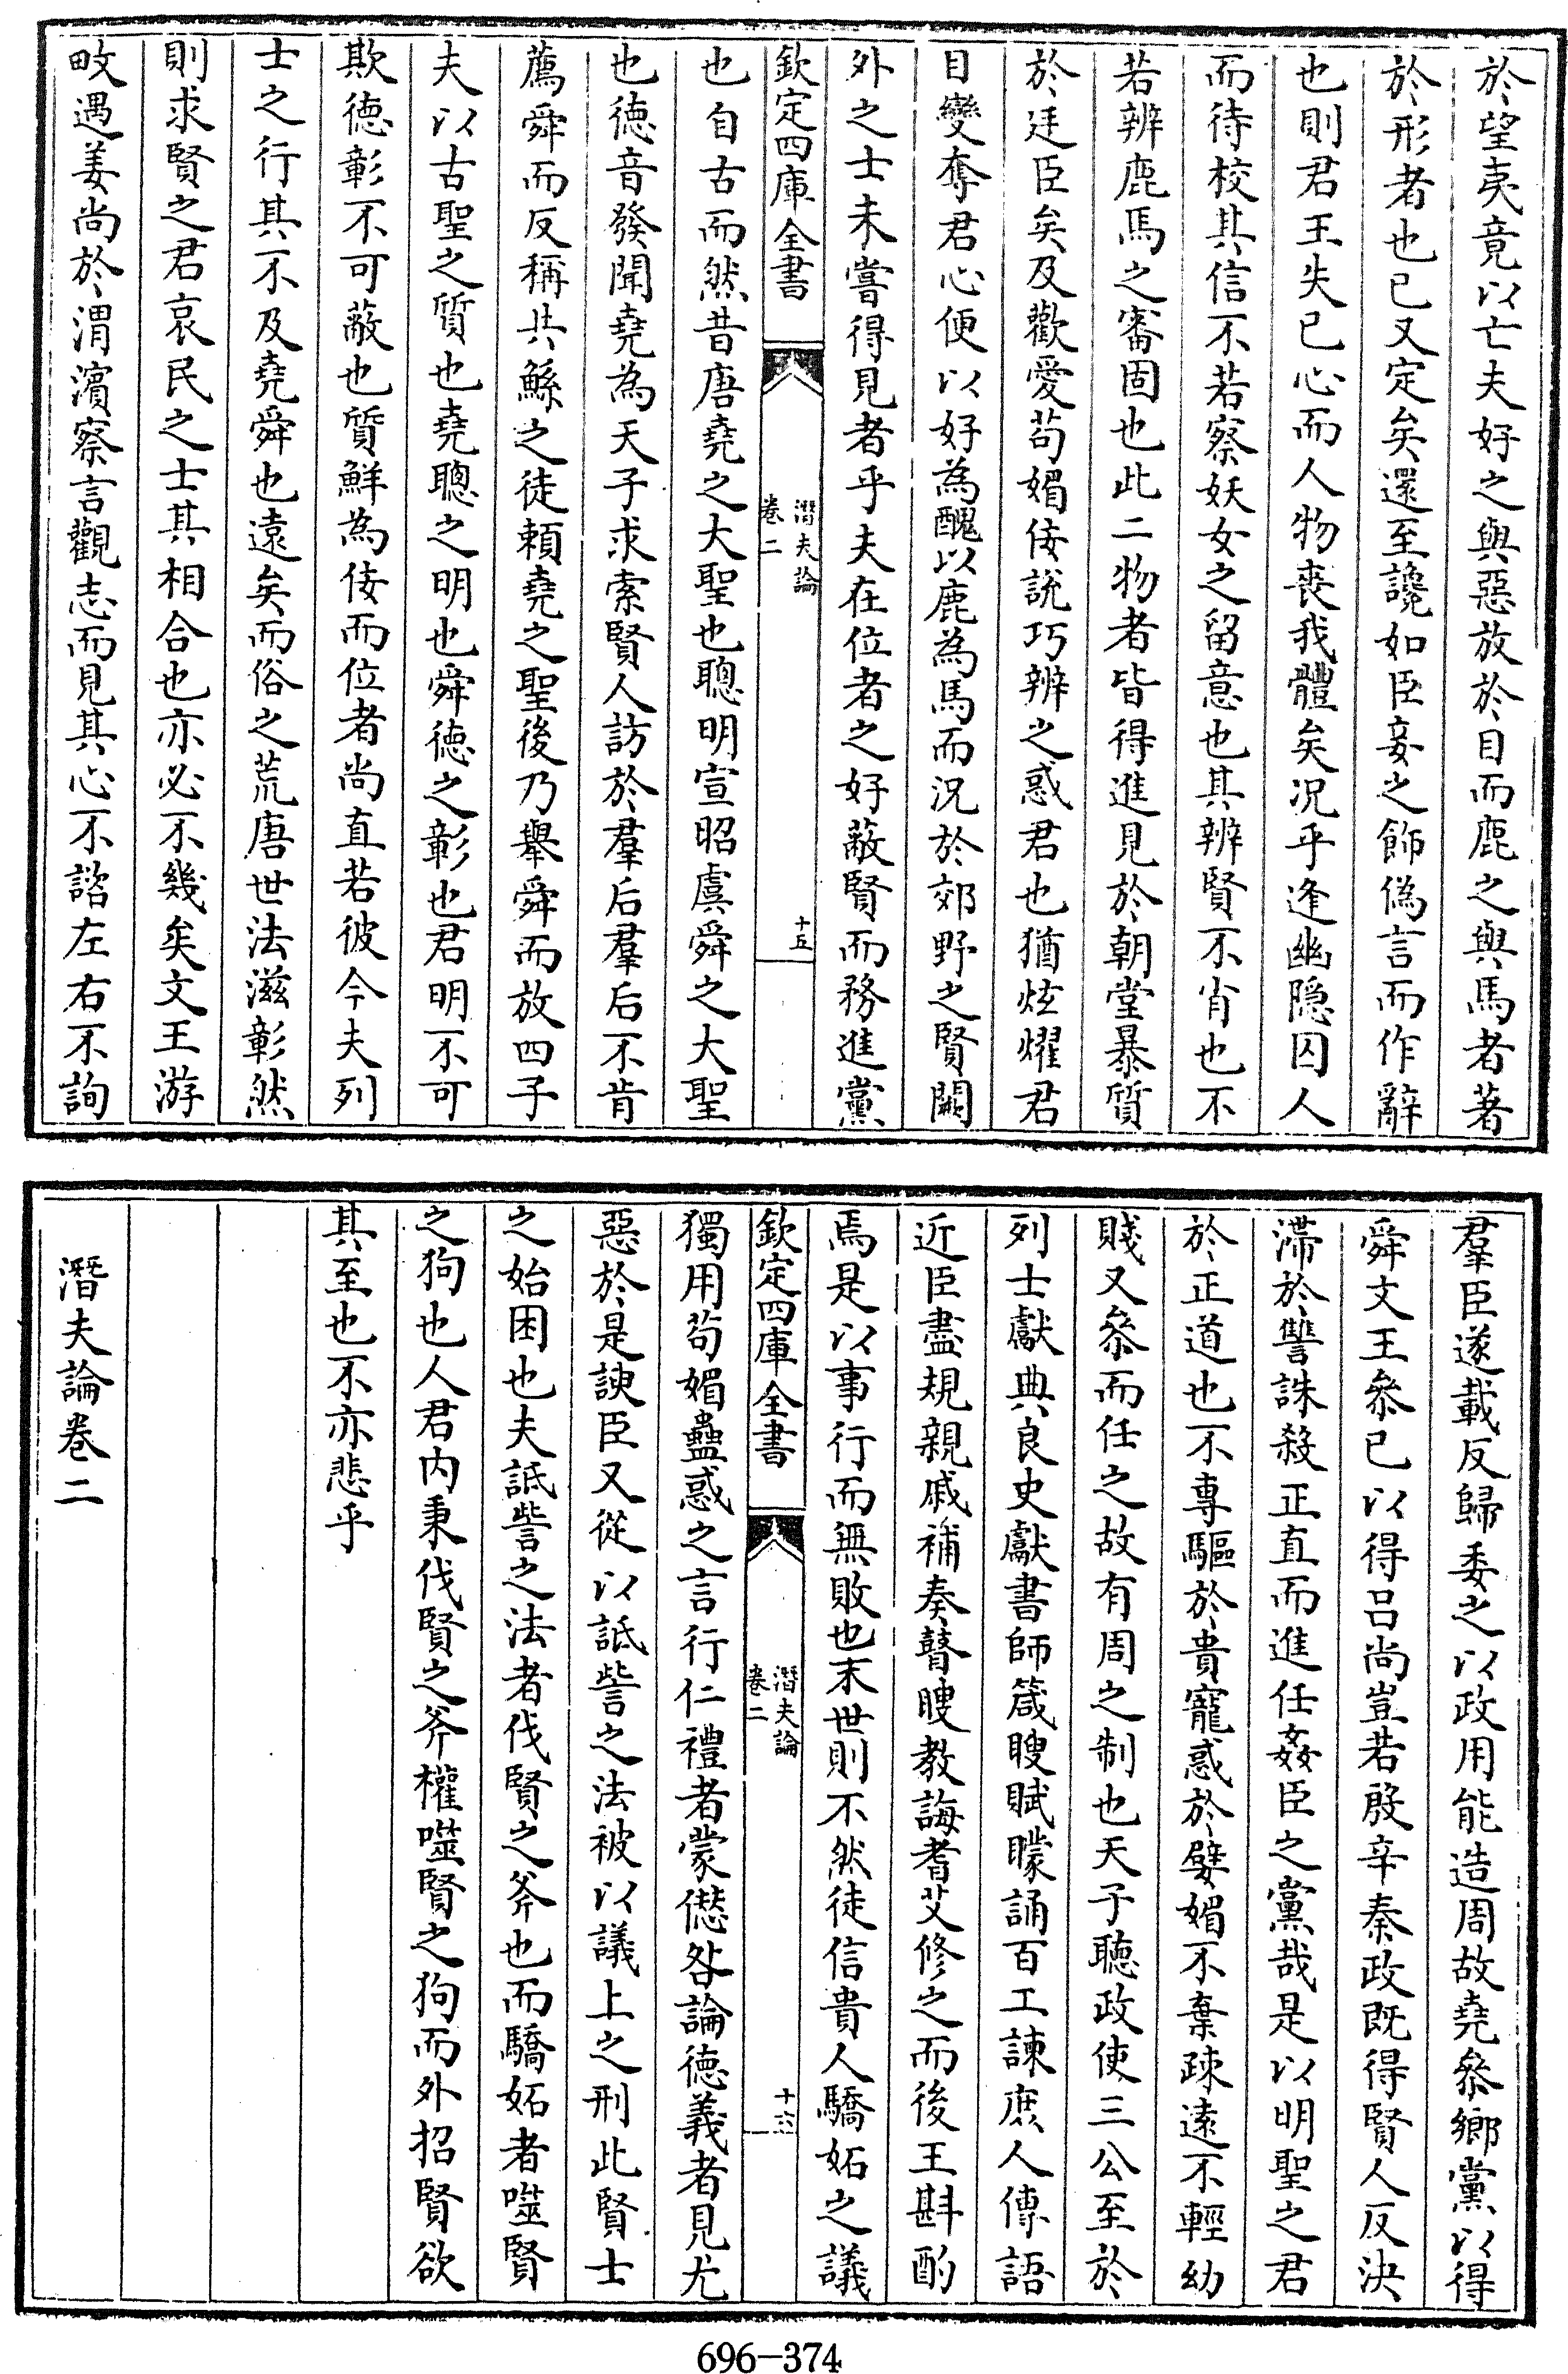 於望夷竟以亡夫好之與惡放於目而鹿之與馬者著
於形者也已又定矣還至讒如臣妾之飾偽言而作辭
也則君王失已心而人物喪我體矣况乎逢幽隠囚人
而待校其信不若察妖女之留意也其辨賢不肖也不
若辨鹿馬之審固也此二物者皆得進見於朝堂暴質
於廷臣矣及歡愛苟媚佞說巧辨之惑君也猶炫燿君
目變奪君心便以好為醜以鹿為馬而況於郊野之賢闕
外之士未嘗得見者乎夫在位者之好蔽賢而務進黨
欽定四庫全書
潛夫論
卷二
十五
也自古而然昔唐堯之大聖也聰明宣昭虞舜之大聖
也徳音發聞堯為天子求索賢人訪於羣后羣后不肯
薦舜而反稱共鯀之徒頼堯之聖後乃舉舜而放四子
夫以古聖之質也堯聰之明也舜徳之彰也君明不可
欺徳彰不可蔽也質鮮為佞而位者尚直若彼今夫列
士之行其不及堯舜也遠矣而俗之荒唐世法滋彰然
則求賢之君哀民之士其相合也亦必不幾矣文王游
畋遇姜尚於渭濱察言觀志而見其心不諮左右不詢
羣臣遂載反歸委之以政用能造周故堯叅鄉黨以得
舜文王叅已以得吕尚豈若殷辛秦政既得賢人反決
滯於讐誅殺正直而進任姦臣之黨哉是以明聖之君
於正道也不専驅於貴寵惑於嬖媚不棄疎遠不輕幼
賤又叅而任之故有周之制也天子聽政使三公至於
列士獻典良史獻書師箴瞍賦矇誦百工諫庶人傳語
近臣盡規親戚補奏瞽瞍教誨耆艾修之而後王斟酌
焉是以事行而無敗也末世則不然徒信貴人驕妬之議
欽定四庫全書
潛夫論
卷二
十六
獨用苟媚蠱惑之言行仁禮者蒙僁咎論徳義者見尤
惡於是諛臣又從以詆訾之法被以議上之刑此賢士
之始困也夫詆訾之法者伐賢之斧也而驕妬者噬賢
之狗也人君内秉伐賢之斧權噬賢之狗而外招賢欲
其至也不亦悲乎
潛夫論卷二
696-374